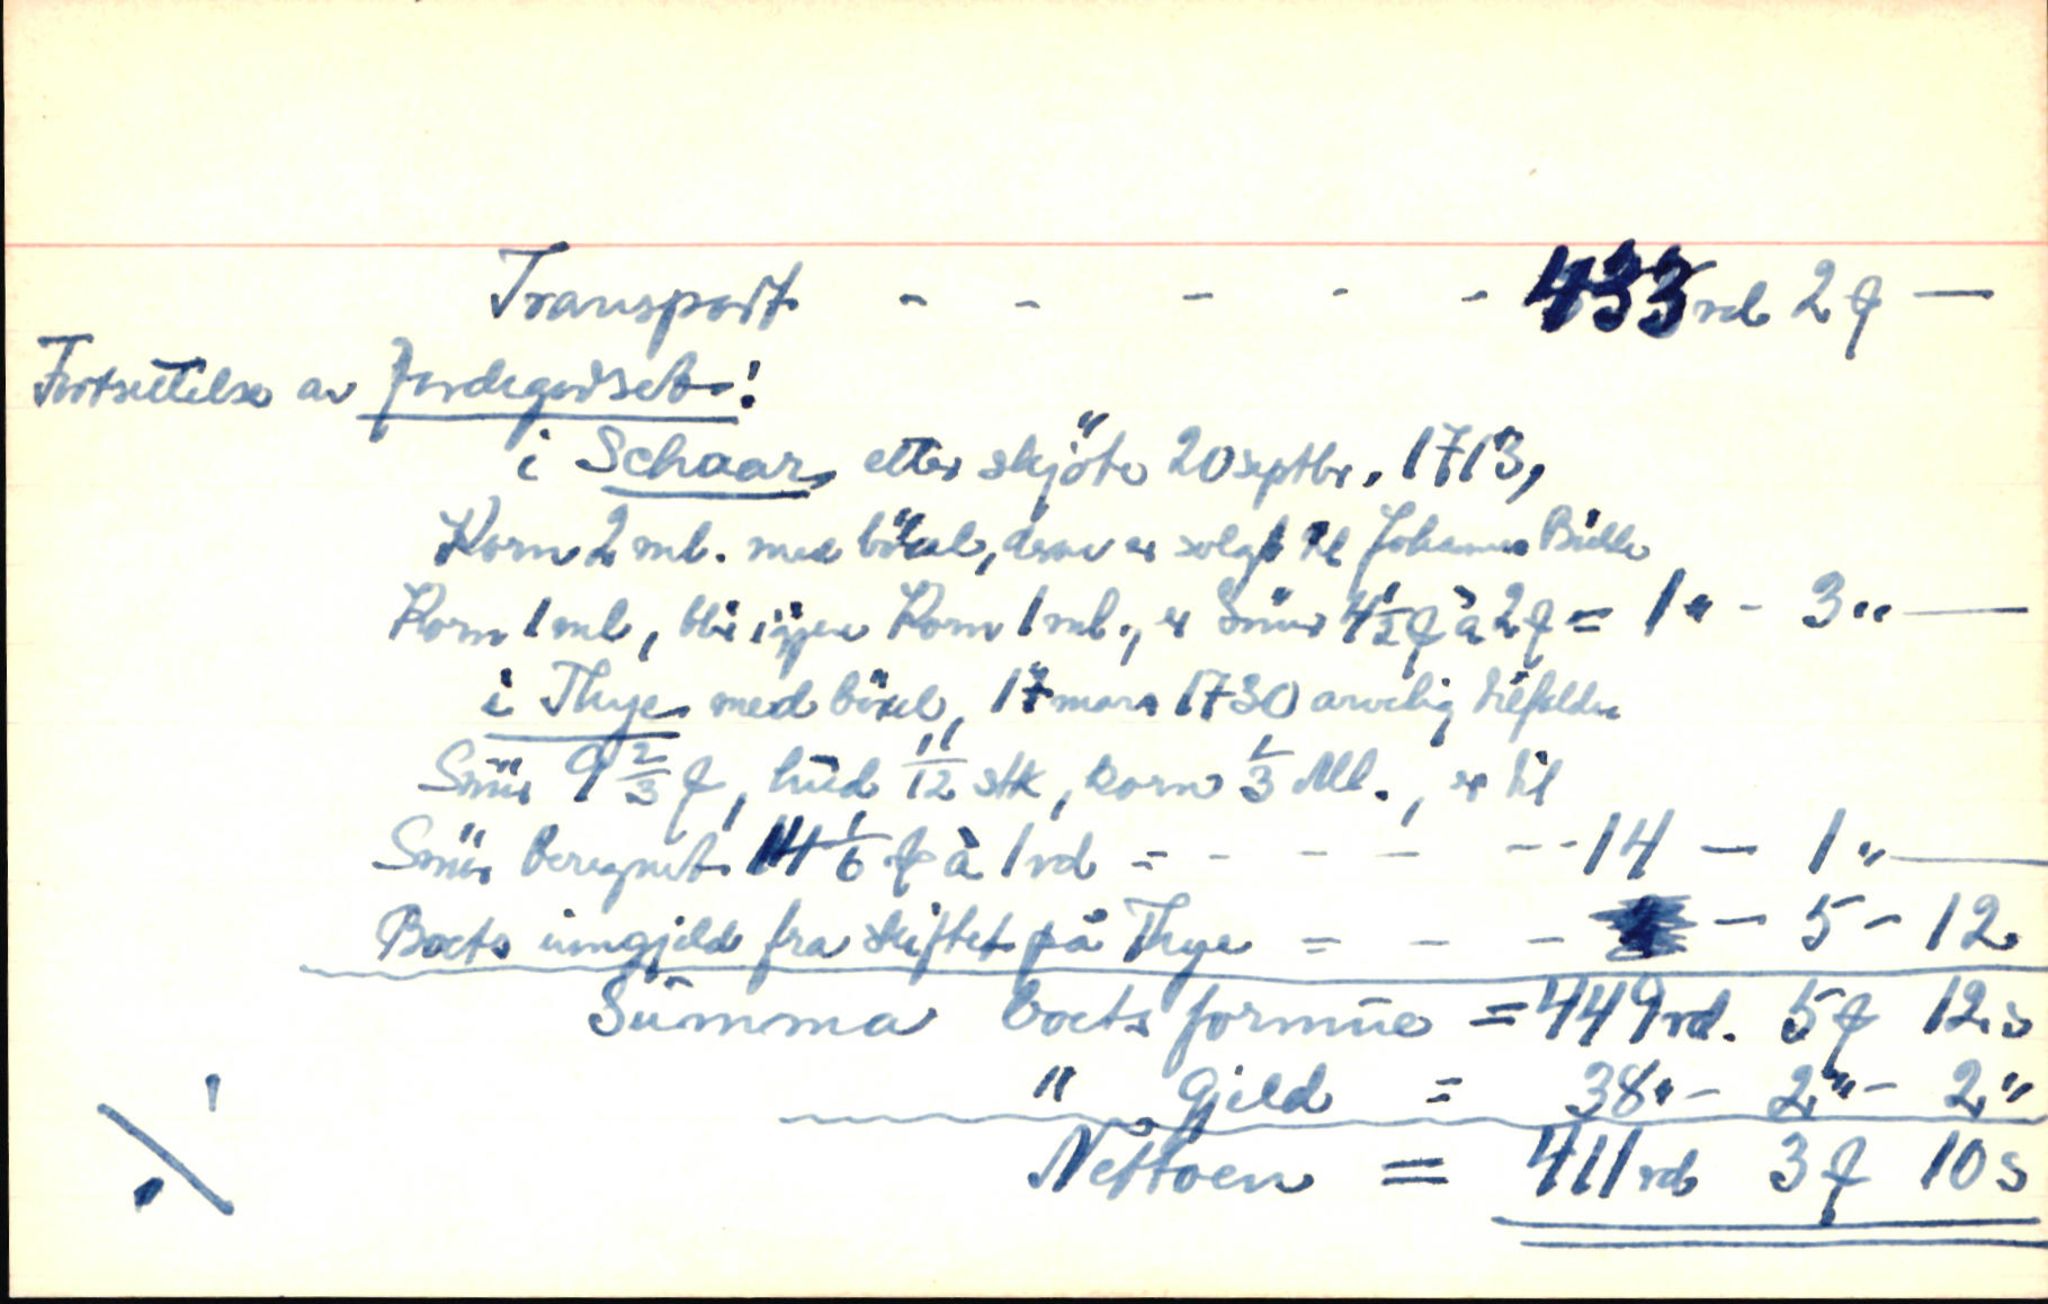 Transport - - - - - 433 rd 2 ƒ —
Fortsettelse av Jordegodset!
i Schaar, etter skjöte 20 septbr. 1713,
Korn 2 ml. med böxel, derav er solgt til Johannes Bille
Korn 1 ml, blir igjen Korn 1 ml., er Smür 4 1/2 ƒ à 2 ƒ = 1 " - 3 " —
i Thye med böxel, 17 mars 1730 arvelig tilfalden
Smür 9 2/3 ƒ, hüd 11/12 stk, korn 1/3 Ml., er til
Smür beregnet 14 1/6 ƒ à 1 rd = - - - - - 14 — 1 " —
Boets inngjeld fra skiftet på Thye = - - - 5 - 12
Summa boets formue = 449 rd. 5 ƒ 12 s
" Gjeld = 38 " - 2 " - 2 "
Nettoen = 411 rd 3 ƒ 10 s
./.